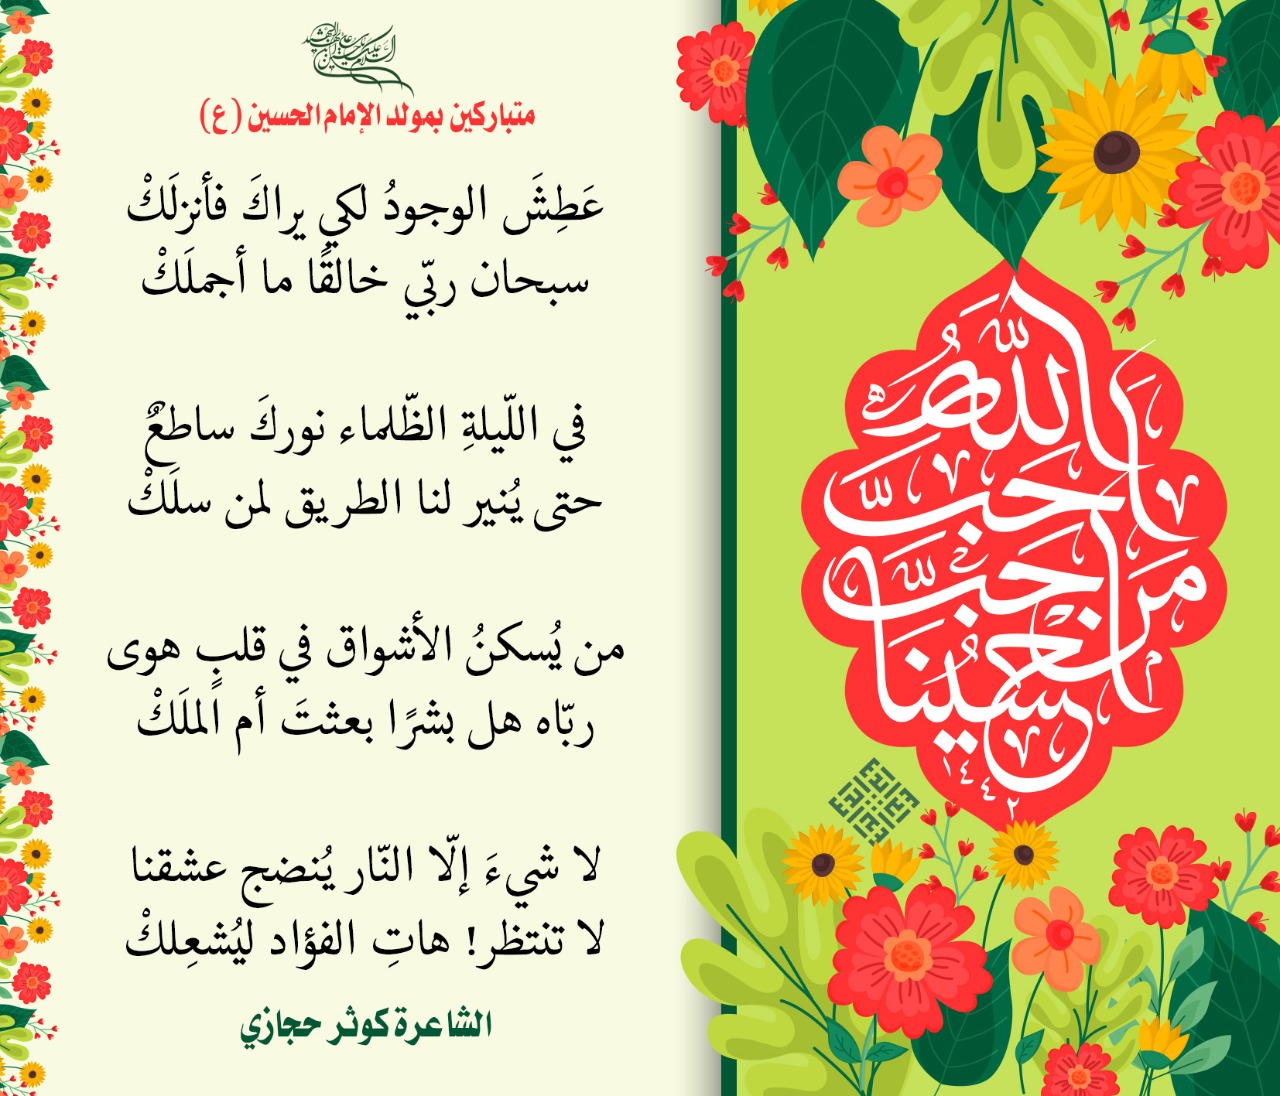 السلام عليك يا أبا عبد الله الحسين الشهيد
متباركين بمولد الإمام الحسين (ع)
عَطِشَ الوجودُ لكي يراكَ فأنزلَكْ
سبحان ربّي خالقًا ما أجملَكْ
في اللّيلةِ الظّلماء نوركَ ساطعٌ
حتى يُنير لنا الطريق لمن سلَكْ
من يُسكنُ الأشواق في قلبٍ هوى
ربّاه هل بشرًا بعثتَ أم الملَكْ
لا شيءَ إلّا النّار يُنضج عشقنا
لا تنتظر! هاتِ الفؤاد ليُشعِلكْ
الشاعرة كوثر حجازي
أحب الله
من أحب
حسينا
١٤٤٢